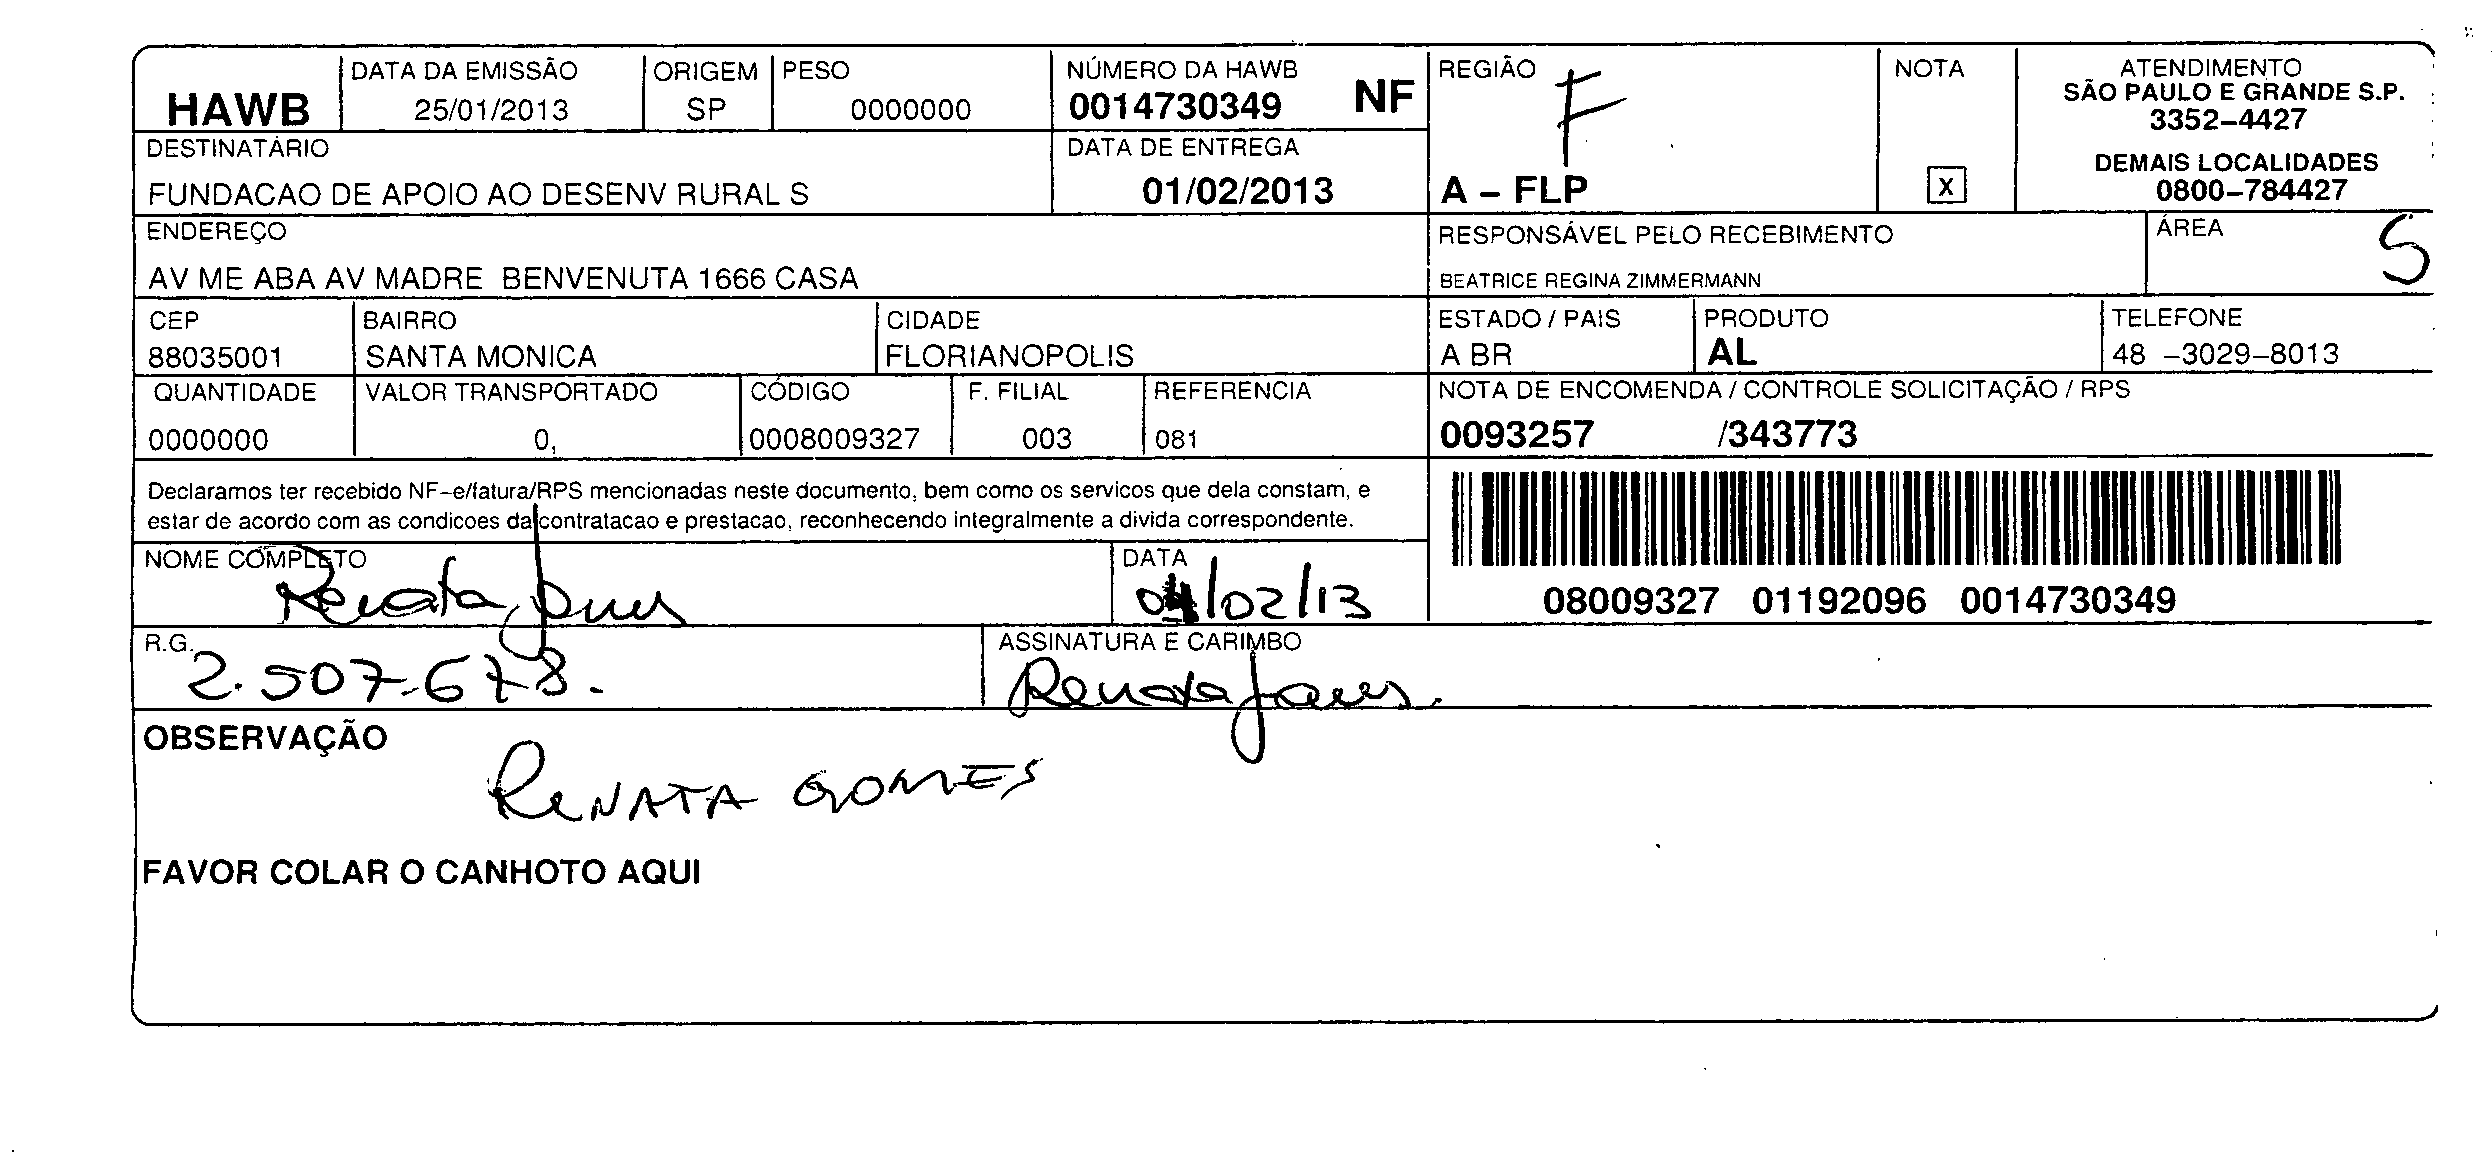 HAWB
DATA DA EMISSÃO
25/01/2013
ORIGEM
SP
PESO
0000000
NÚMERO DA HAWB
0014730349 NF
REGIÃO
F
A – FLP
NOTA
X
ATENDIMENTO
SÃO PAULO E GRANDE S.P.
3352–4427
DEMAIS LOCALIDADES
0800–784427
DESTINATÁRIO
FUNDACAO DE APOIO AO DESENV RURAL S
DATA DE ENTREGA
01/02/2013
ENDEREÇO
AV ME ABA AV MADRE BENVENUTA 1666 CASA
RESPONSÁVEL PELO RECEBIMENTO
BEATRICE REGINA ZIMMERMANN
ÁREA
S
CEP
88035001
BAIRRO
SANTA MONICA
CIDADE
FLORIANOPOLIS
ESTADO / PAIS
A BR
PRODUTO
AL
TELEFONE
48 –3029–8013
QUANTIDADE
0000000
VALOR TRANSPORTADO
0,
CÓDIGO
0008009327
F. FILIAL
003
REFERENCIA
081
NOTA DE ENCOMENDA / CONTROLE SOLICITAÇÃO / RPS
0093257 /343773
Declaramos ter recebido NF–e/fatura/RPS mencionadas neste documento, bem como os servicos que dela constam, e
estar de acordo com as condicoes da contratacao e prestacao, reconhecendo integralmente a divida correspondente.
08009327 01192096 0014730349
NOME COMPLETO
Renata
DATA
/02/13
R.G.
2.507.678.
ASSINATURA E CARIMBO
Renata
OBSERVAÇÃO
RENATA GOMES
FAVOR COLAR O CANHOTO AQUI